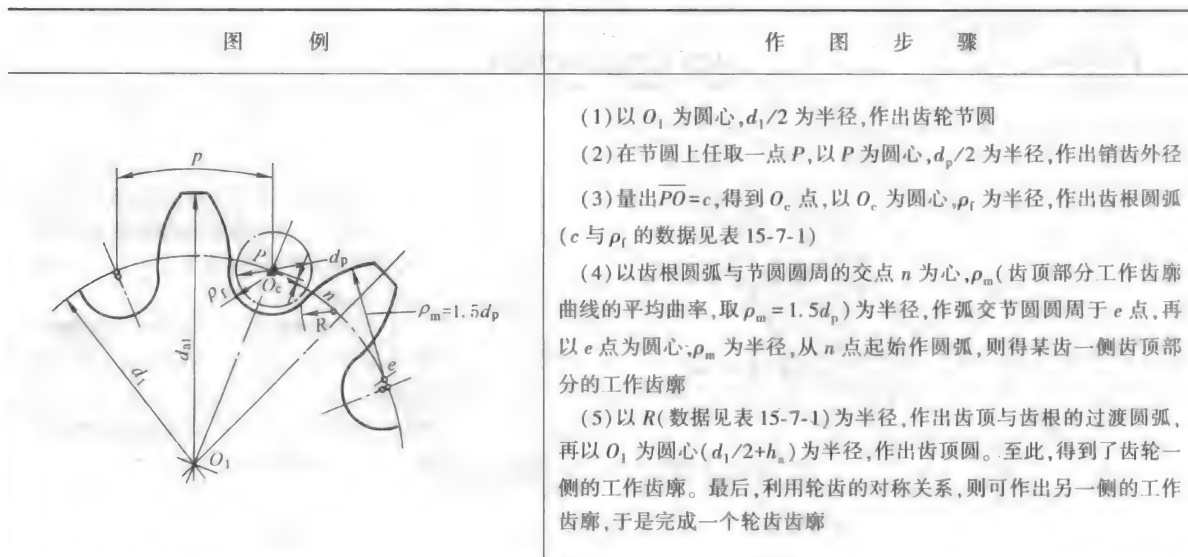 图 例
作 图 步 骤
(1)以 O₁ 为圆心,d₁/2 为半径,作出齿轮节圆
(2)在节圆上任取一点 P,以 P 为圆心,dₚ/2 为半径,作出销齿外径
(3)量出P̅O̅=c,得到 O_c 点,以 O_c 为圆心,ρ_f 为半径,作出齿根圆弧
(c 与 ρ_f 的数据见表 15-7-1)
(4)以齿根圆弧与节圆圆周的交点 n 为心,ρₘ(齿顶部分工作齿廓
曲线的平均曲率,取 ρₘ=1.5dₚ)为半径,作弧交节圆圆周于 e 点,再
以 e 点为圆心,ρₘ 为半径,从 n 点起始作圆弧,则得某齿一侧齿顶部
分的工作齿廓
(5)以 R(数据见表 15-7-1)为半径,作出齿顶与齿根的过渡圆弧,
再以 O₁ 为圆心(d₁/2+hₐ)为半径,作出齿顶圆。至此,得到了齿轮一
侧的工作齿廓。最后,利用轮齿的对称关系,则可作出另一侧的工作
齿廓,于是完成一个轮齿齿廓
p
P
dₚ
ρ_f
O_c
n
R
ρₘ=1.5dₚ
e
dₐ₁
d₁
O₁